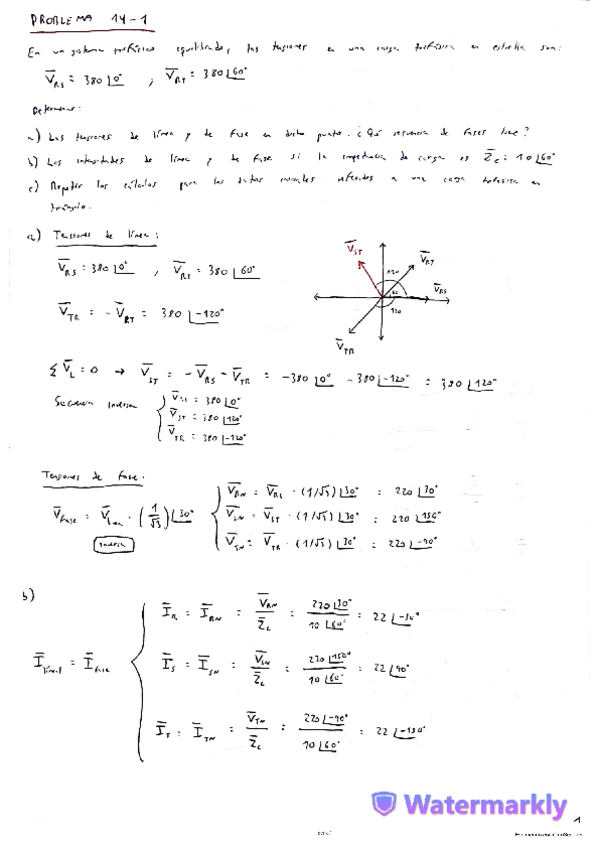 PROBLEMA 14-1
En un sistema trifásico equilibrado, las tensiones en una carga trifásica en estrella son:
V̅RS = 380⌊0° , V̅RT = 380⌊60°
Determinar:
a) Las tensiones de línea y de fase en dicho punto. ¿Qué secuencia de fases tiene?
b) Las intensidades de línea y de fase si la impedancia de carga es Z̅c = 10⌊60°
c) Repetir los cálculos para los datos iniciales referidos a una carga trifásica en
triángulo.
a) Tensiones de línea:
V̅RS = 380⌊0° , V̅RT = 380⌊60°
V̅TR = -V̅RT = 380⌊-120°
V̅ST
V̅RT
120
60
V̅RS
120
V̅TR
Σ V̅L = 0 → V̅ST = -V̅RS - V̅TR = -380⌊0° - 380⌊-120° = 380⌊120°
Secuencia inversa
V̅RS = 380⌊0°
V̅ST = 380⌊120°
V̅TR = 380⌊-120°
Tensiones de fase:
V̅Fase = V̅Línea · (1/√3)⌊30°
inversa
V̅RN = V̅RS · (1/√3)⌊30° = 220⌊30°
V̅SN = V̅ST · (1/√3)⌊30° = 220⌊150°
V̅TN = V̅TR · (1/√3)⌊30° = 220⌊-90°
b)
I̅línea = I̅fase
I̅R = I̅RN = V̅RN/Z̅c = 220⌊30°/10⌊60° = 22⌊-30°
I̅S = I̅SN = V̅SN/Z̅c = 220⌊150°/10⌊60° = 22⌊90°
I̅T = I̅TN = V̅TN/Z̅c = 220⌊-90°/10⌊60° = 22⌊-150°
Watermarkly
1